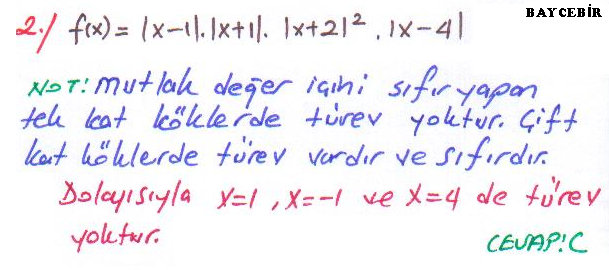 BAYCEBİR
2./ f(x) = |x-1|.|x+1|. |x+2|² . |x-4|
NOT: mutlak değer içini sıfır yapan
tek kat köklerde türev yoktur. Çift
kat köklerde türev vardır ve sıfırdır.
Dolayısıyla x=1 , x=-1 ve x=4 de türev
yoktur.
CEVAP: C